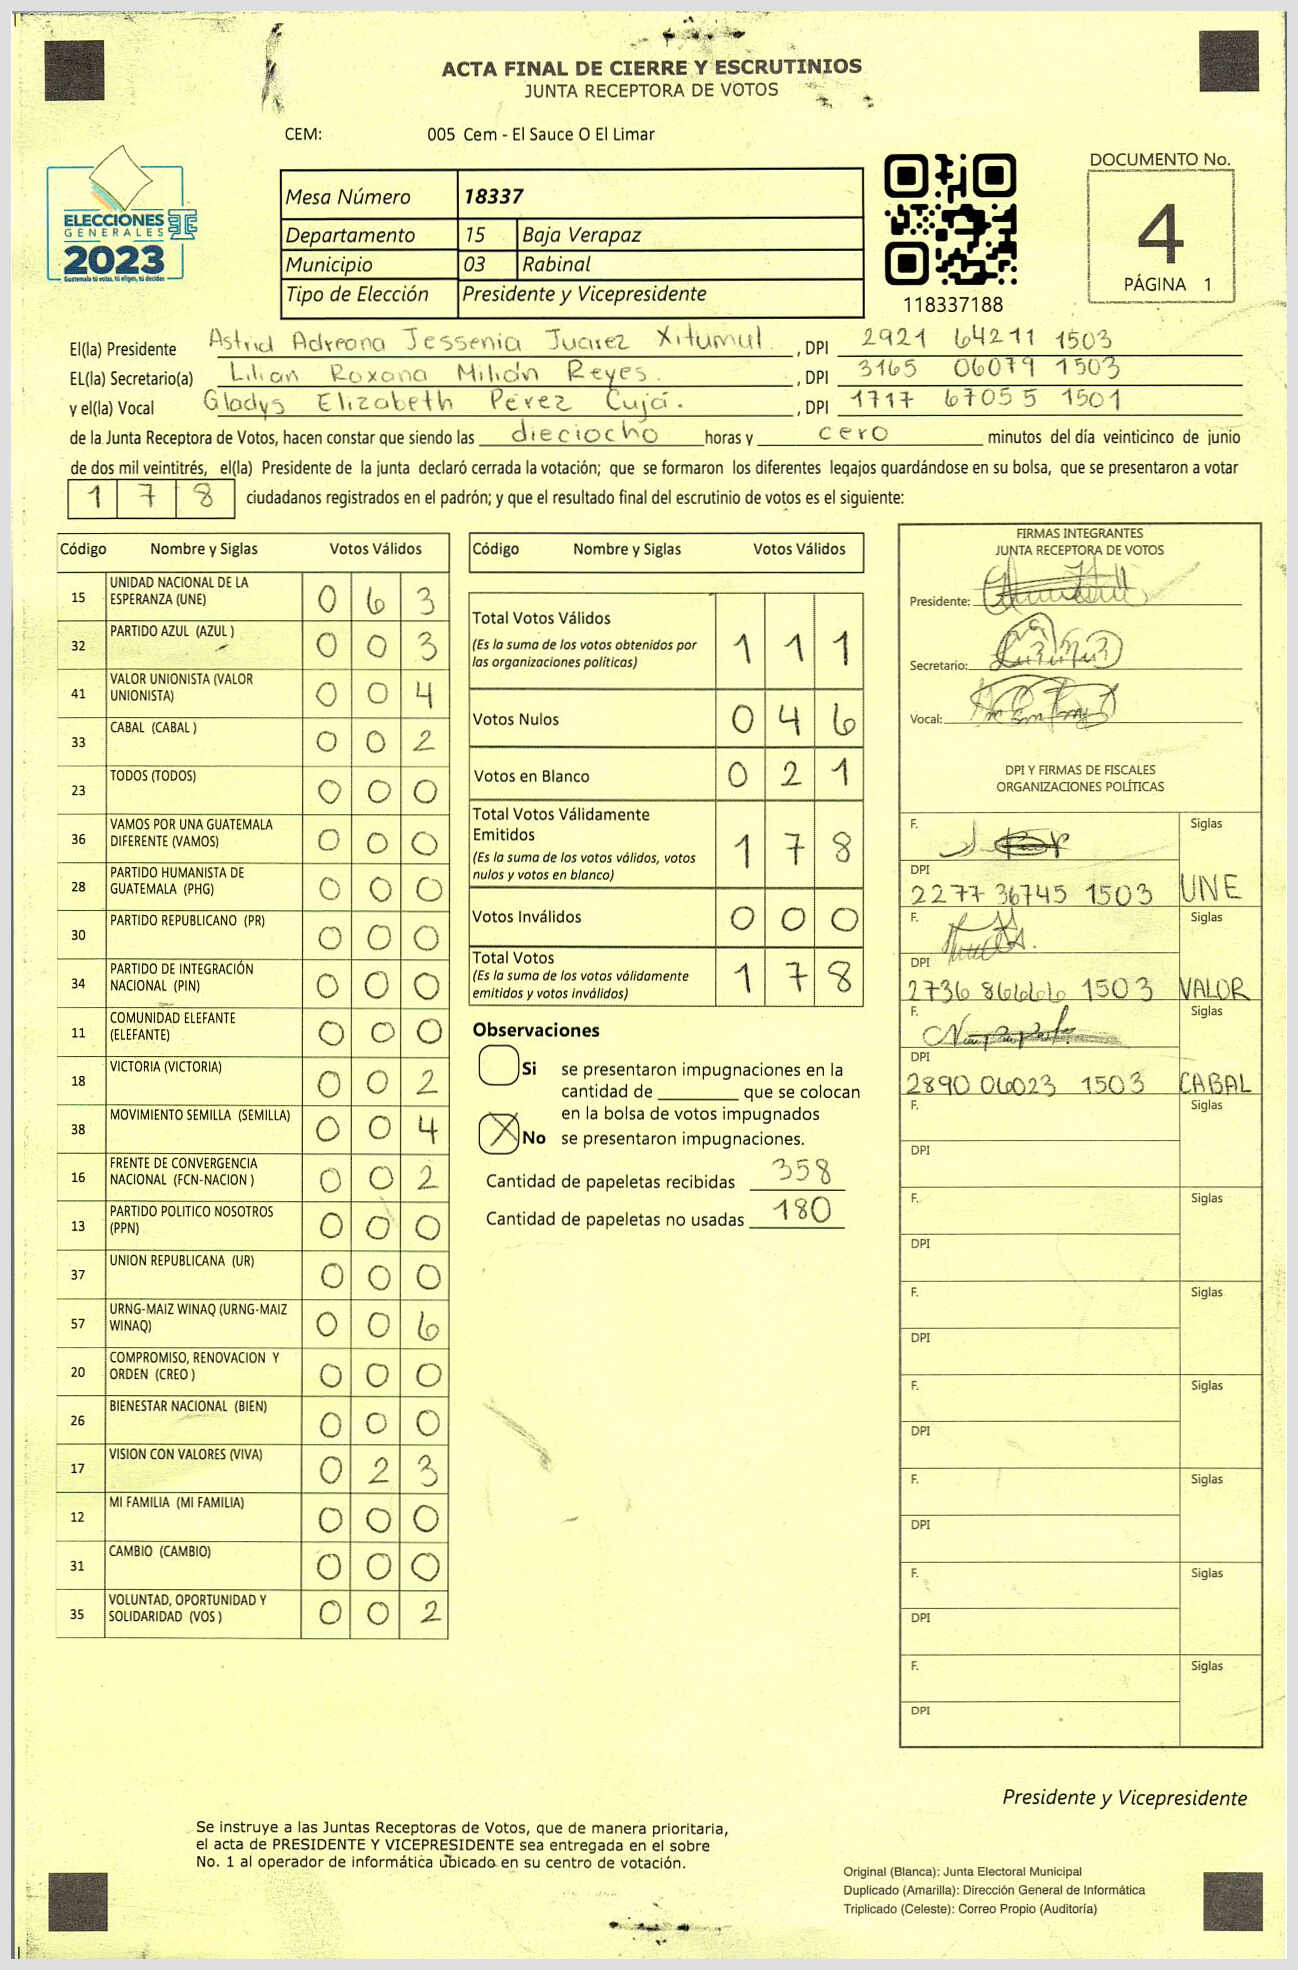 ACTA FINAL DE CIERRE Y ESCRUTINIOS
JUNTA RECEPTORA DE VOTOS
CEM: 005 Cem - El Sauce O El Limar
ELECCIONES
GENERALES
2023
Guatemala tú votas, tú eliges, tú decides
Mesa Número 18337
Departamento 15 Baja Verapaz
Municipio 03 Rabinal
Tipo de Elección Presidente y Vicepresidente
118337188
DOCUMENTO No.
4
PÁGINA 1
El(la) Presidente Astrid Adreana Jessenia Juarez Xitumul , DPI 2921 64211 1503
EL(la) Secretario(a) Lilian Roxana Milián Reyes. , DPI 3165 06079 1503
y el(la) Vocal Gladys Elizabeth Pérez Cujá. , DPI 1717 67055 1501
de la Junta Receptora de Votos, hacen constar que siendo las dieciocho horas y cero minutos del día veinticinco de junio
de dos mil veintitrés, el(la) Presidente de la junta declaró cerrada la votación; que se formaron los diferentes legajos guardándose en su bolsa, que se presentaron a votar
1 7 8 ciudadanos registrados en el padrón; y que el resultado final del escrutinio de votos es el siguiente:
Código Nombre y Siglas Votos Válidos
15 UNIDAD NACIONAL DE LA ESPERANZA (UNE) 0 6 3
32 PARTIDO AZUL (AZUL ) 0 0 3
41 VALOR UNIONISTA (VALOR UNIONISTA) 0 0 4
33 CABAL (CABAL ) 0 0 2
23 TODOS (TODOS) 0 0 0
36 VAMOS POR UNA GUATEMALA DIFERENTE (VAMOS) 0 0 0
28 PARTIDO HUMANISTA DE GUATEMALA (PHG) 0 0 0
30 PARTIDO REPUBLICANO (PR) 0 0 0
34 PARTIDO DE INTEGRACIÓN NACIONAL (PIN) 0 0 0
11 COMUNIDAD ELEFANTE (ELEFANTE) 0 0 0
18 VICTORIA (VICTORIA) 0 0 2
38 MOVIMIENTO SEMILLA (SEMILLA) 0 0 4
16 FRENTE DE CONVERGENCIA NACIONAL (FCN-NACION ) 0 0 2
13 PARTIDO POLITICO NOSOTROS (PPN) 0 0 0
37 UNION REPUBLICANA (UR) 0 0 0
57 URNG-MAIZ WINAQ (URNG-MAIZ WINAQ) 0 0 6
20 COMPROMISO, RENOVACION Y ORDEN (CREO ) 0 0 0
26 BIENESTAR NACIONAL (BIEN) 0 0 0
17 VISION CON VALORES (VIVA) 0 2 3
12 MI FAMILIA (MI FAMILIA) 0 0 0
31 CAMBIO (CAMBIO) 0 0 0
35 VOLUNTAD, OPORTUNIDAD Y SOLIDARIDAD (VOS ) 0 0 2
Código Nombre y Siglas Votos Válidos
Total Votos Válidos 1 1 1
(Es la suma de los votos obtenidos por
las organizaciones políticas)
Votos Nulos 0 4 6
Votos en Blanco 0 2 1
Total Votos Válidamente
Emitidos 1 7 8
(Es la suma de los votos válidos, votos
nulos y votos en blanco)
Votos Inválidos 0 0 0
Total Votos 1 7 8
(Es la suma de los votos válidamente
emitidos y votos inválidos)
Observaciones
Si se presentaron impugnaciones en la
cantidad de ________ que se colocan
en la bolsa de votos impugnados
X No se presentaron impugnaciones.
Cantidad de papeletas recibidas 358
Cantidad de papeletas no usadas 180
FIRMAS INTEGRANTES
JUNTA RECEPTORA DE VOTOS
Presidente:
Secretario:
Vocal:
DPI Y FIRMAS DE FISCALES
ORGANIZACIONES POLÍTICAS
F. Siglas
DPI
2277 36745 1503 UNE
F. Siglas
DPI
2736 86666 1503 VALOR
F. Siglas
DPI
2890 06023 1503 CABAL
F. Siglas
DPI
F. Siglas
DPI
F. Siglas
DPI
F. Siglas
DPI
F. Siglas
DPI
F. Siglas
DPI
F. Siglas
DPI
Presidente y Vicepresidente
Se instruye a las Juntas Receptoras de Votos, que de manera prioritaria,
el acta de PRESIDENTE Y VICEPRESIDENTE sea entregada en el sobre
No. 1 al operador de informática ubicado en su centro de votación.
Original (Blanca): Junta Electoral Municipal
Duplicado (Amarilla): Dirección General de Informática
Triplicado (Celeste): Correo Propio (Auditoría)